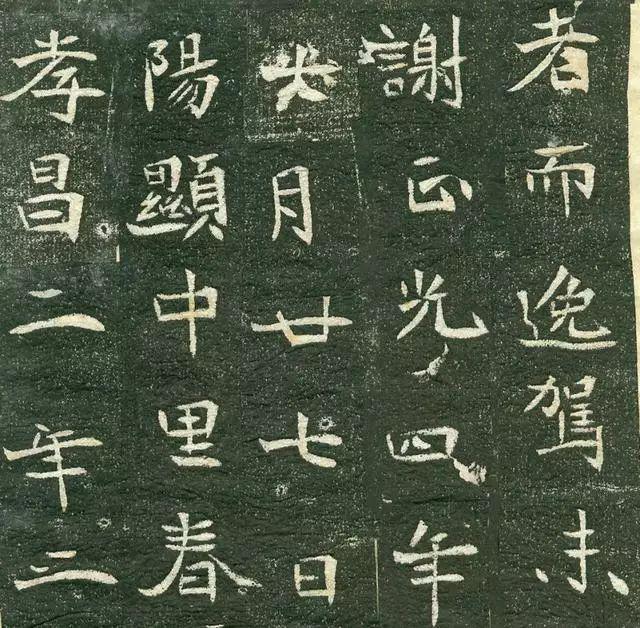 者而逸駕未
謝正光四年
六月廿七日
陽顯中里春
孝昌二年三